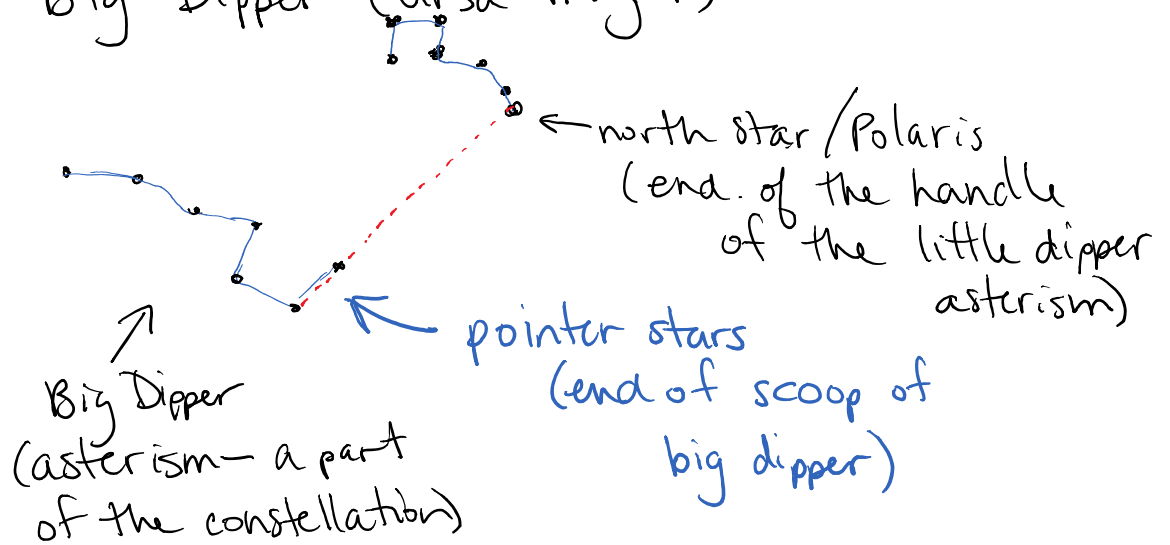 Big Dipper (ursa
north star/Polaris
(end of the handle
of the little dipper
asterism)
pointer stars
(end of scoop of
big dipper)
Big Dipper
(asterism- a part
of the constellation)